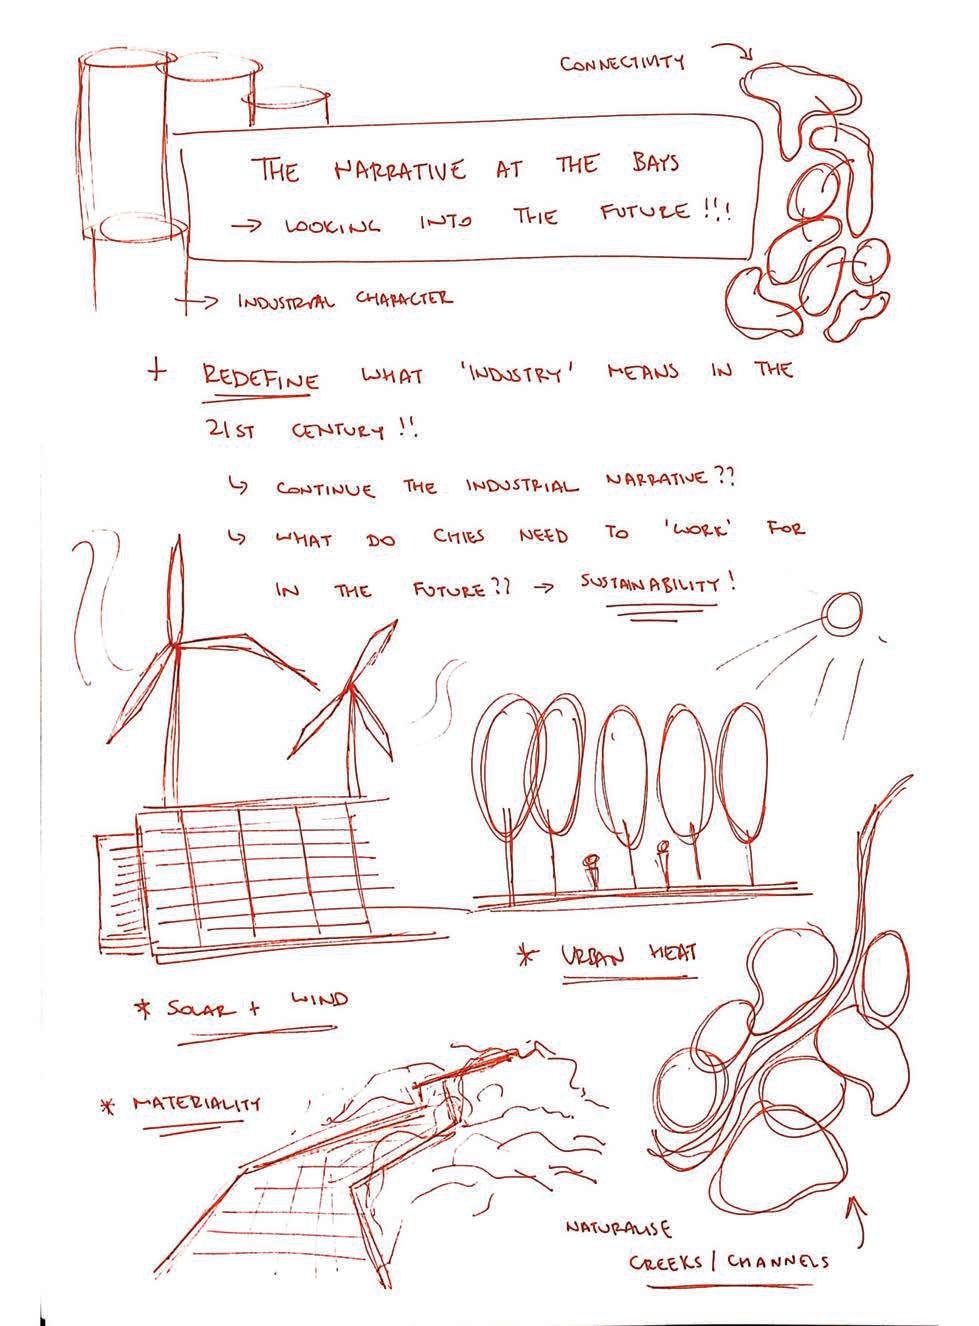 CONNECTIVITY
THE NARRATIVE AT THE BAYS
→ LOOKING INTO THE FUTURE!!!
→ INDUSTRIAL CHARACTER
+ REDEFINE WHAT 'INDUSTRY' MEANS IN THE
21ST CENTURY!!
↳ CONTINUE THE INDUSTRIAL NARRATIVE??
↳ WHAT DO CITIES NEED TO 'WORK' FOR
IN THE FUTURE?? → SUSTAINABILITY!
* URBAN HEAT
* SOLAR + WIND
* MATERIALITY
NATURALISE
CREEKS / CHANNELS